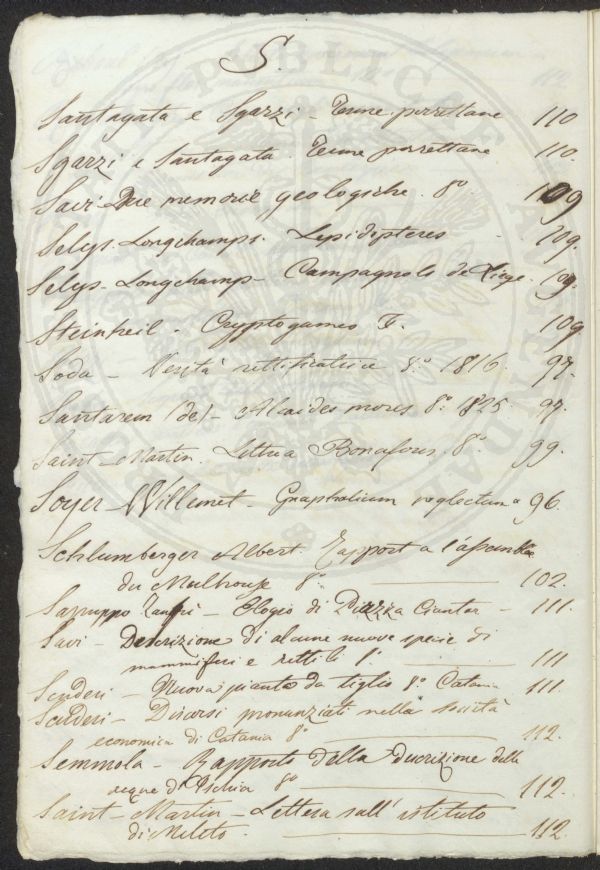 S.
Santagata e Sgarzi - Terme porrettane 110
Sgarzi e Santagata. Terme porrettane 110.
Savi - Due memorie geologiche. 8° 109
Selys-Longchamps. Lepidopteres 109.
Selys-Longchamp - Campagnols de Liege. 109.
Steinheil. Cryptogames F. 109
Soda - Verità rettificatrice 8.° 1816. 97.
Santarem (de) - Alcaides mores 8.° 1825. 97.
Saint-Martin. Lettera Bonafous. 8.° 99.
Soyer-Willemet - Gnaphalium neglectum 96.
Schlumberger Albert. Rapport a l'assemblée
du Mulhouse 8° 102.
Sapuppo Zanghi - Elogio di Piazza Ciantar - 111.
Savi - Descrizione di alcune nuove specie di
mammiferi e rettili 8.° 111
Scuderi - Nuova pianta da tiglio 8.° Catania 111.
Scuderi - Discorsi pronunziati nella società
economica di Catania 8° 112.
Semmola - Rapporto della descrizione delle
acque d'Ischia 8° 112.
Saint-Martin - Lettera sull'istituto
di Mileto. 112
PUBLICAE